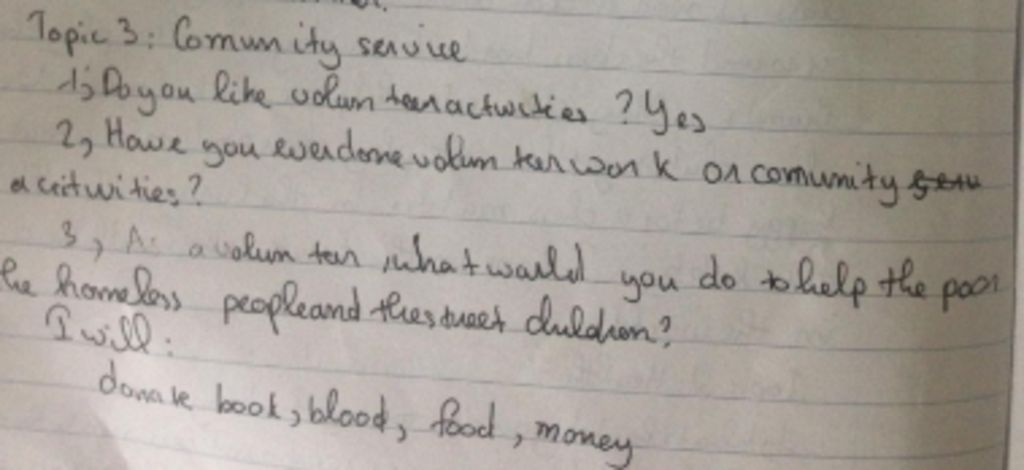 Topic 3: Comunity service
1, Do you like volunteer activities? Yes
2, Have you ever done volunteer work or comunity
aceitivities?
3, As a volunteer, what would you do to help the poor
the homeless people and the street children?
I will:
donate book, blood, food, money